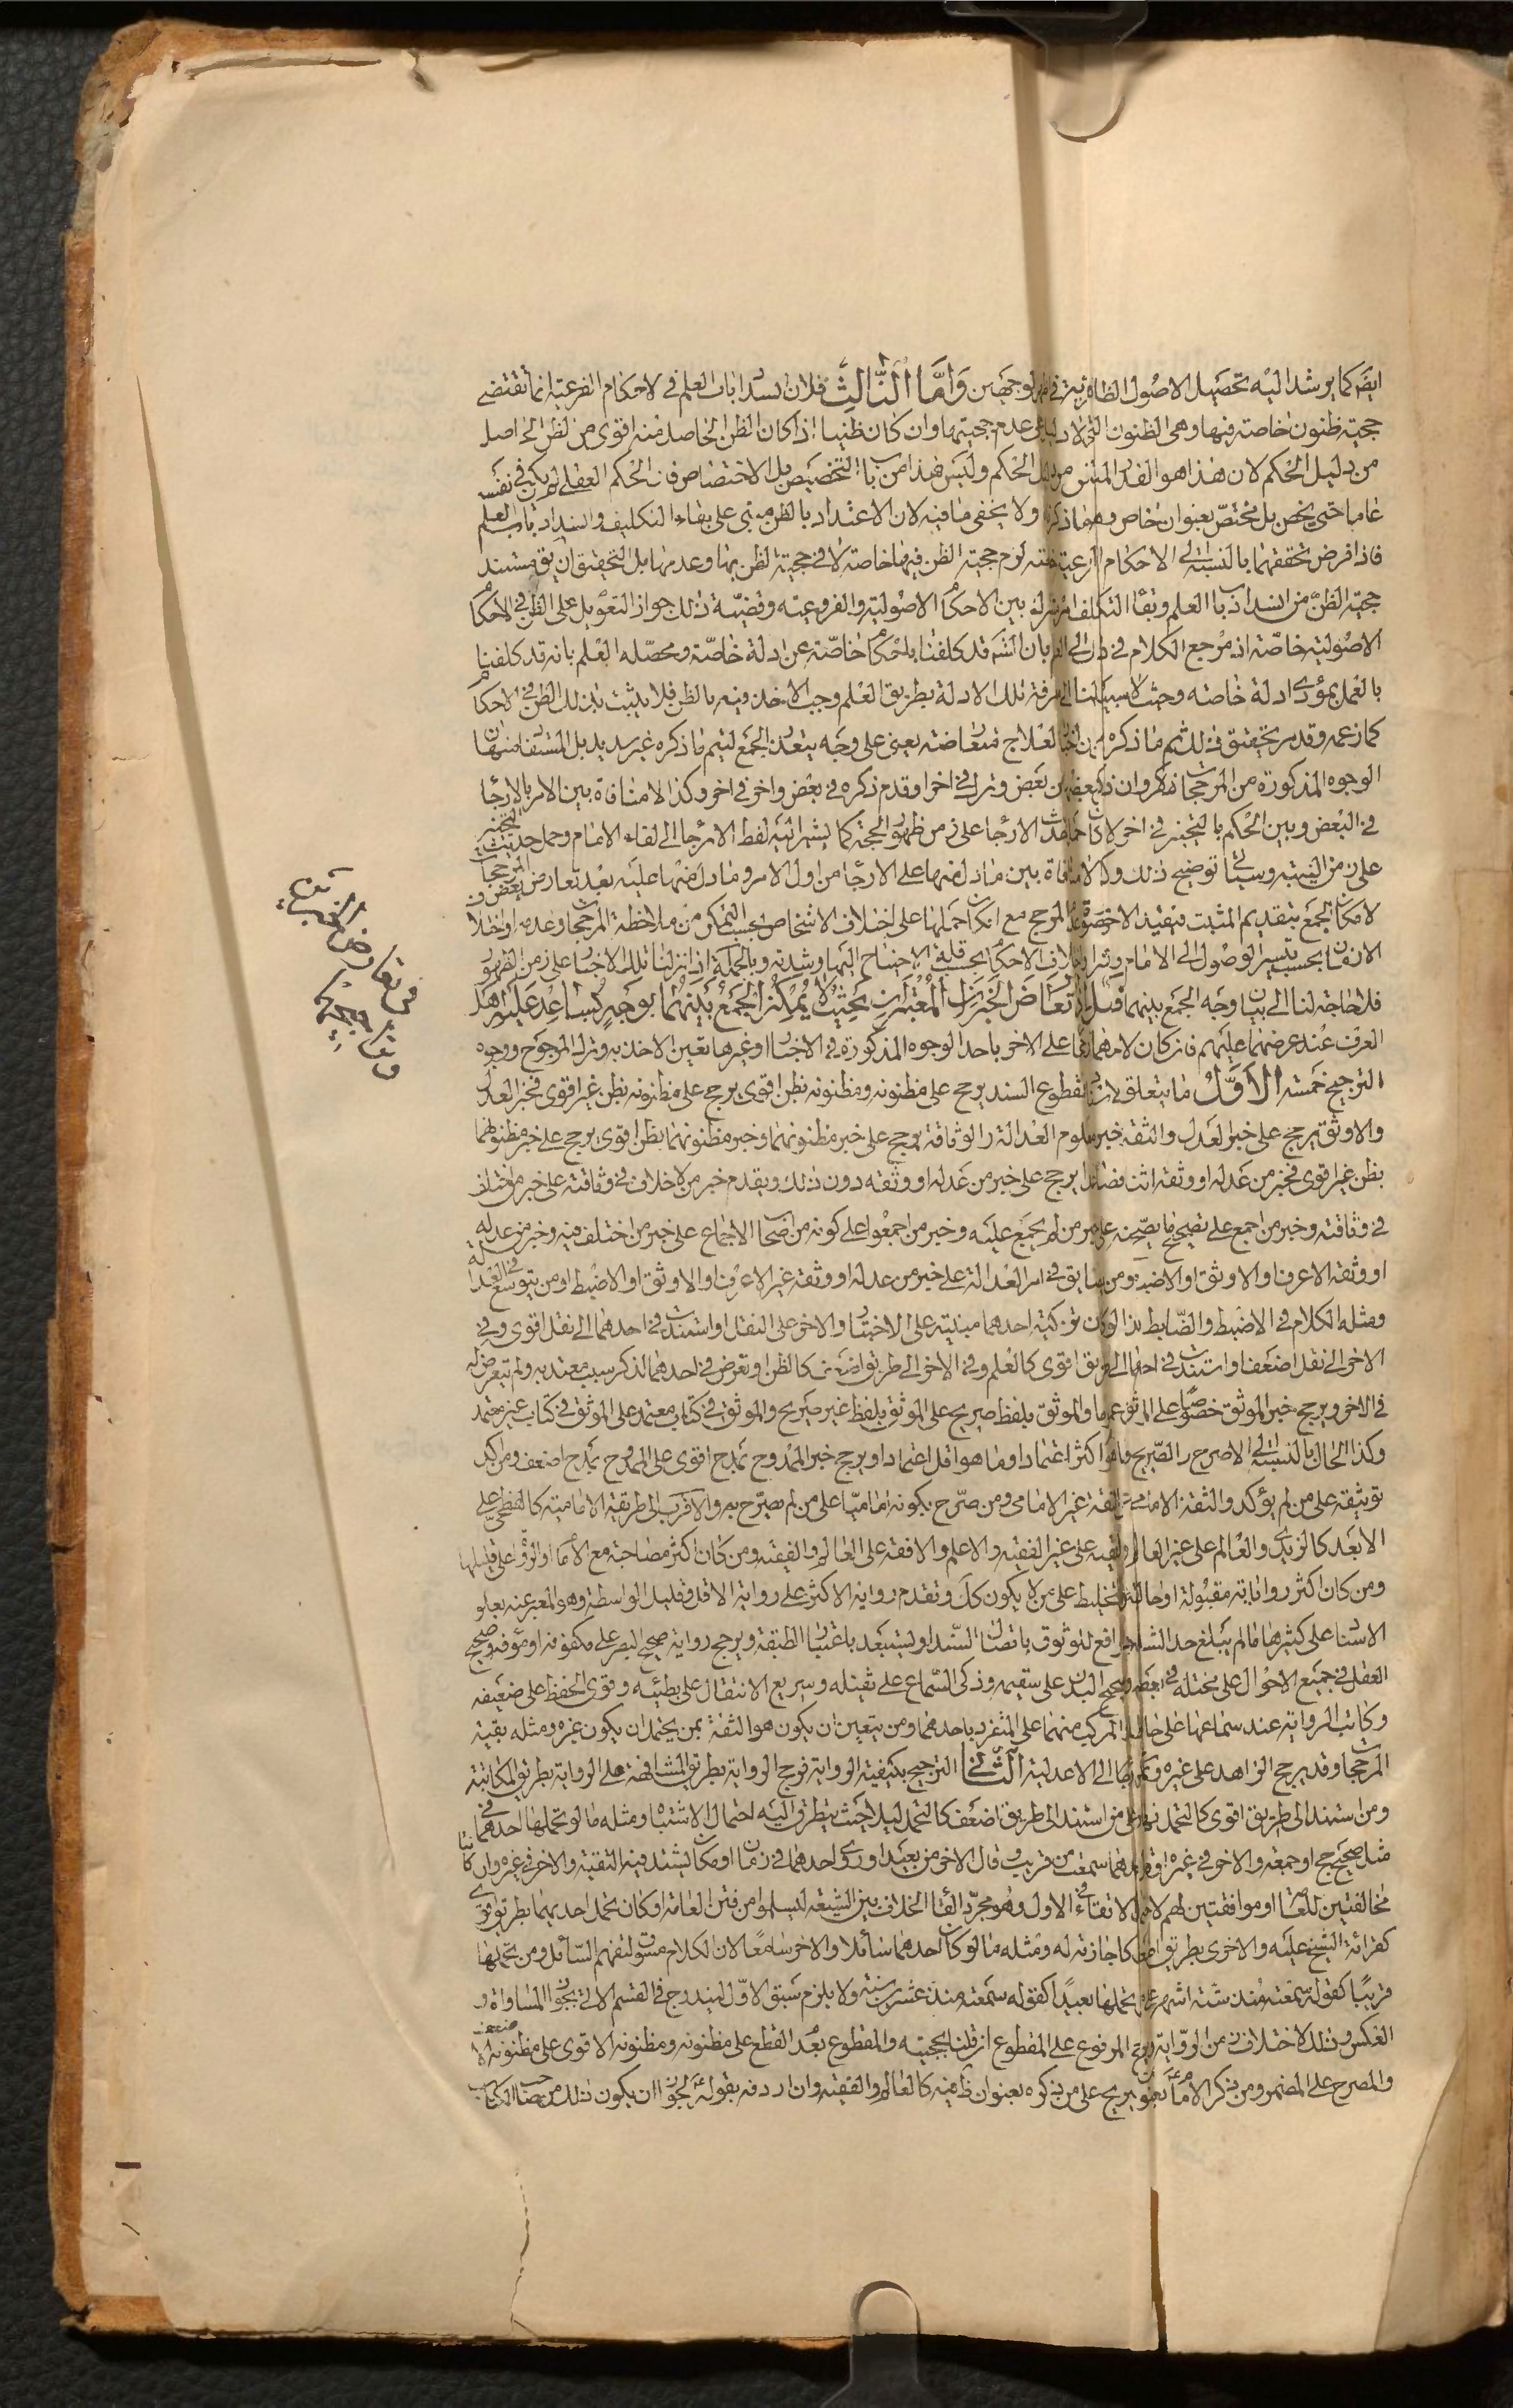 ايضا كما يرشد اليه تحصيل الاصول الظاهرية في الوجهين واما الثالث فلان انسداد باب العلم في الاحكام الفرعية انما تقتضي
حجية ظنون خاصة فيها وهي الظنون التي لا دليل على عدم حجيتها وان كان ظنيا اذا كان الظن الحاصل منه اقوى من الظن الحاصل
من دليل الحكم لان هذا هو القدر المتيقن من دليل الحكم وليس هذا من باب التخصيص بل الاختصاص فان الحكم العقلي لم يكن في نفسه
عاما حتى يخص بل مختص بعنوان خاص وهو ما ذكر ولا يخفى ما فيه لان الاعتداد بالظن مبني على بقاء التكليف وانسداد باب العلم
فاذا فرض تحققهما بالنسبة الى الاحكام الفرعية منه لزم حجية الظن فيها خاصة لا في حجية الظن بها وعدمها بل التحقيق ان يق مستند
حجية الظن من انسداد باب العلم وبقاء التكليف امر مشترك بين الاحكام الاصولية والفروعية وقضية ذلك جواز التعويل على الظن في الاحكام
الاصولية خاصة اذ مرجع الكلام في ذلك الى العلم بان الله قد كلفنا باحكام خاصة عن ادلة خاصة ومحصله العلم بانه قد كلفنا
بالعمل بمؤدى ادلة خاصة وحيث لا سبيل لنا الى معرفة تلك الادلة بطريق العلم وجب الاخذ فيه بالظن فلا يثبت بذلك الظن في الاحكام
كما زعمه وقد مر تحقيق ذلك ثم ما ذكره من اخبار العلاج متعارضة يعني على وجه يتعذر الجمع ليتم ما ذكره غير سديد بل المستفاد منها ان
الوجوه المذكورة من المرجحات وان ذكر بعض من بعض وترك في اخر او قدم ذكره في بعض واخر في اخر وكذا لا منافاة بين الامر بالارجاء
في البعض وبين الحكم بالتخيير في اخر لامكان حمل حديث الارجاء على زمن ظهور الحجة كما يشير اليه لفظ الارجاء الى لقاء الامام وحمل حديث التخيير
على زمن الغيبة وسياتي توضيح ذلك وكذا لا منافاة بين ما دل منها على الارجاء من اول الامر وما دل منها عليه بعد تعارض بعض المرجحات
لامكان الجمع بتقديم المثبت فيقيد الاخر بصورة عدم المرجح مع امكان حملها على اختلاف الاشخاص بحسب التمكن من ملاحظة المرجحات وعدمه او اختلاف
الازمان بحسب تيسر الوصول الى الامام وتعذره او اختلاف الاحكام بحسب قلة الاحتياج اليها وشدته وبالجملة اذا نزلنا تلك الاخبار على زمن الظهور
فلا حاجة لنا الى بيان وجه الجمع بينهما فصل اذا تعارض الخبران المعتبران بحيث لا يمكن الجمع بينهما بوجه يساعد عليه اهل
العرف عند عرضهما عليهم فان كان لاحدهما رجحان على الاخر باحد الوجوه المذكورة في الاخبار او غيرها تعين الاخذ به وترك المرجوح ووجوه
الترجيح خمسة الاول ما يتعلق بالسند فمقطوع السند يرجح على مظنونه ومظنونه بظن اقوى يرجح على مظنونه بظن غير اقوى فخبر العدل
والاوثق يرجح على خبر العدل والثقة خبر معلوم العدالة او الوثاقة يرجح على خبر مظنونهما وخبر مظنونهما بظن اقوى يرجح على خبر مظنونهما
بظن غير اقوى فخبر من عدله او وثقه اثنان فصاعدا يرجح على خبر من عدله او وثقه دون ذلك ويقدم خبر من لا خلاف في وثاقته على خبر من اختلف
في وثاقته وخبر من اجمع على تصحيح ما يصح عنه على خبر من لم يجمع عليه وخبر من اجمعوا على كونه من اصحاب الاجماع على خبر من اختلف فيه وخبر من عدله
او وثقه الاعرف او الاوثق او الاضبط ومن يضايق في امر العدالة على خبر من عدله او وثقه غير الاعرف او الاوثق او الاضبط او من يتوسع في العدالة
ومثله الكلام في الاضبط والضابط اذا كان تزكية احدهما مبنية على الاختبار والاخر على النقل او استند في احدهما الى نقل اقوى وفي
الاخر الى نقل اضعف او استند في احدهما الى طريق اقوى كالعلم وفي الاخر الى طريق اضعف كالظن او تعرض في احدهما لذكر سبب معتد به ولم يتعرض له
في الاخر ويرجح خبر الموثق خصوصا على الموثق عموما والموثق بلفظ صريح على الموثق بلفظ غير صريح والموثق في كتاب معتمد على الموثق في كتاب غير معتمد
وكذا الحال بالنسبة الى الاصرح والصريح وما هو اكثر اعتمادا وما هو اقل اعتمادا ويرجح خبر الممدوح بمدح اقوى على الممدوح بمدح اضعف ومن اكد
توثيقه على من لم يؤكد والثقة الامامي على الثقة غير الامامي ومن صرح بكونه اماميا على من لم يصرح به والاقرب الى طريقة الامامية كالفطحي على
الابعد كالزيدي والعالم على غير العالم والفقيه على غير الفقيه والاعلم والافقه على العالم والفقيه ومن كان اكثر مصاحبة مع الامام او الرواة على قليلها
ومن كان اكثر رواياته مقبولة او خالية عن التخليط على من لا يكون كل وتقدم رواية الاكثر على رواية الاقل وقليل الواسطة وهو المعبر عنه بعلو
الاسناد على كثيرها ما لم يبلغ حد الشذوذ الرافع للوثوق باتصال السند او يستبعد باعتبار الطبقة ويرجح رواية صحيح البصر على مكفوفه او مؤفه وصحيح
العقل في جميع الاحوال على مختله في بعضه وصحيح البدن على سقيمه وذكي السماع على ثقيله وسريع الانتقال على بطيئه وقوي الحفظ على ضعيفه
وكاتب الرواية عند سماعها على حافظها والمركب منهما على المتفرد باحدهما ومن يتعين ان يكون هو الثقة بمن يحتمل ان يكون غيره ومثله بقية
المرجحات وقد يرجح الزاهد على غيره ويمكن ارجاعها الى الاعدلية الثاني الترجيح بكيفية الرواية فترجح الرواية بطريق المشافهة على الرواية بطريق المكاتبة
ومن استند الى طريق اقوى كالتحمل نهارا على من استند الى طريق اضعف كالتحمل ليلا حيث يتطرق اليه احتمال الاشتباه ومثله ما لو تحملها احدهما في
مثل صحيح حج او جمعة والاخر في غيره او قال احدهما سمعت من قريب وقال الاخر من بعيد او روى احدهما في زمان او مكان يشتد فيه التقية والاخر في غيره وان كانتا
مخالفتين للعامة او موافقتين لهم لاحتمال الاتقاء في الاول وهو مجرد القاء الخلاف بين الشيعة ليسلموا من فتن العامة او كان تحمل احديهما بطريق اقوى
كقرائة الشيخ عليه والاخرى بطريق اضعف كاجازته له ومثله ما لو كان احدهما سائلا والاخر سامعا لان الكلام مسوق لتفهيم السائل ومن تحملها
قريبا كقوله سمعته منذ ستة اشهر على من تحملها بعيدا كقوله سمعته منذ عشرين سنة ولا يلزم سبق الاول ليندرج في القسم الاتي بجواز المساواة و
العكس وتلك لاختلاف زمن الرواية ويرجح المرفوع على المقطوع ان قلنا بحجيته والمقطوع بعد القطع على مظنونه ومظنونه الاقوى على مظنونه الاضعف
والمصرح على المضمر ومن ذكر الامام بعنوان يرجح على من ذكره بعنوان ظاهر فيه كالعالم والفقيه وان اردفه بقوله لجواز ان يكون ذلك من صاحب الكتاب